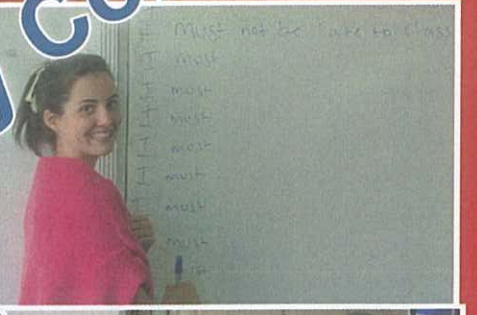 CO
I Must not be late to class
I must
I must
I must
I must
I must
I must
must